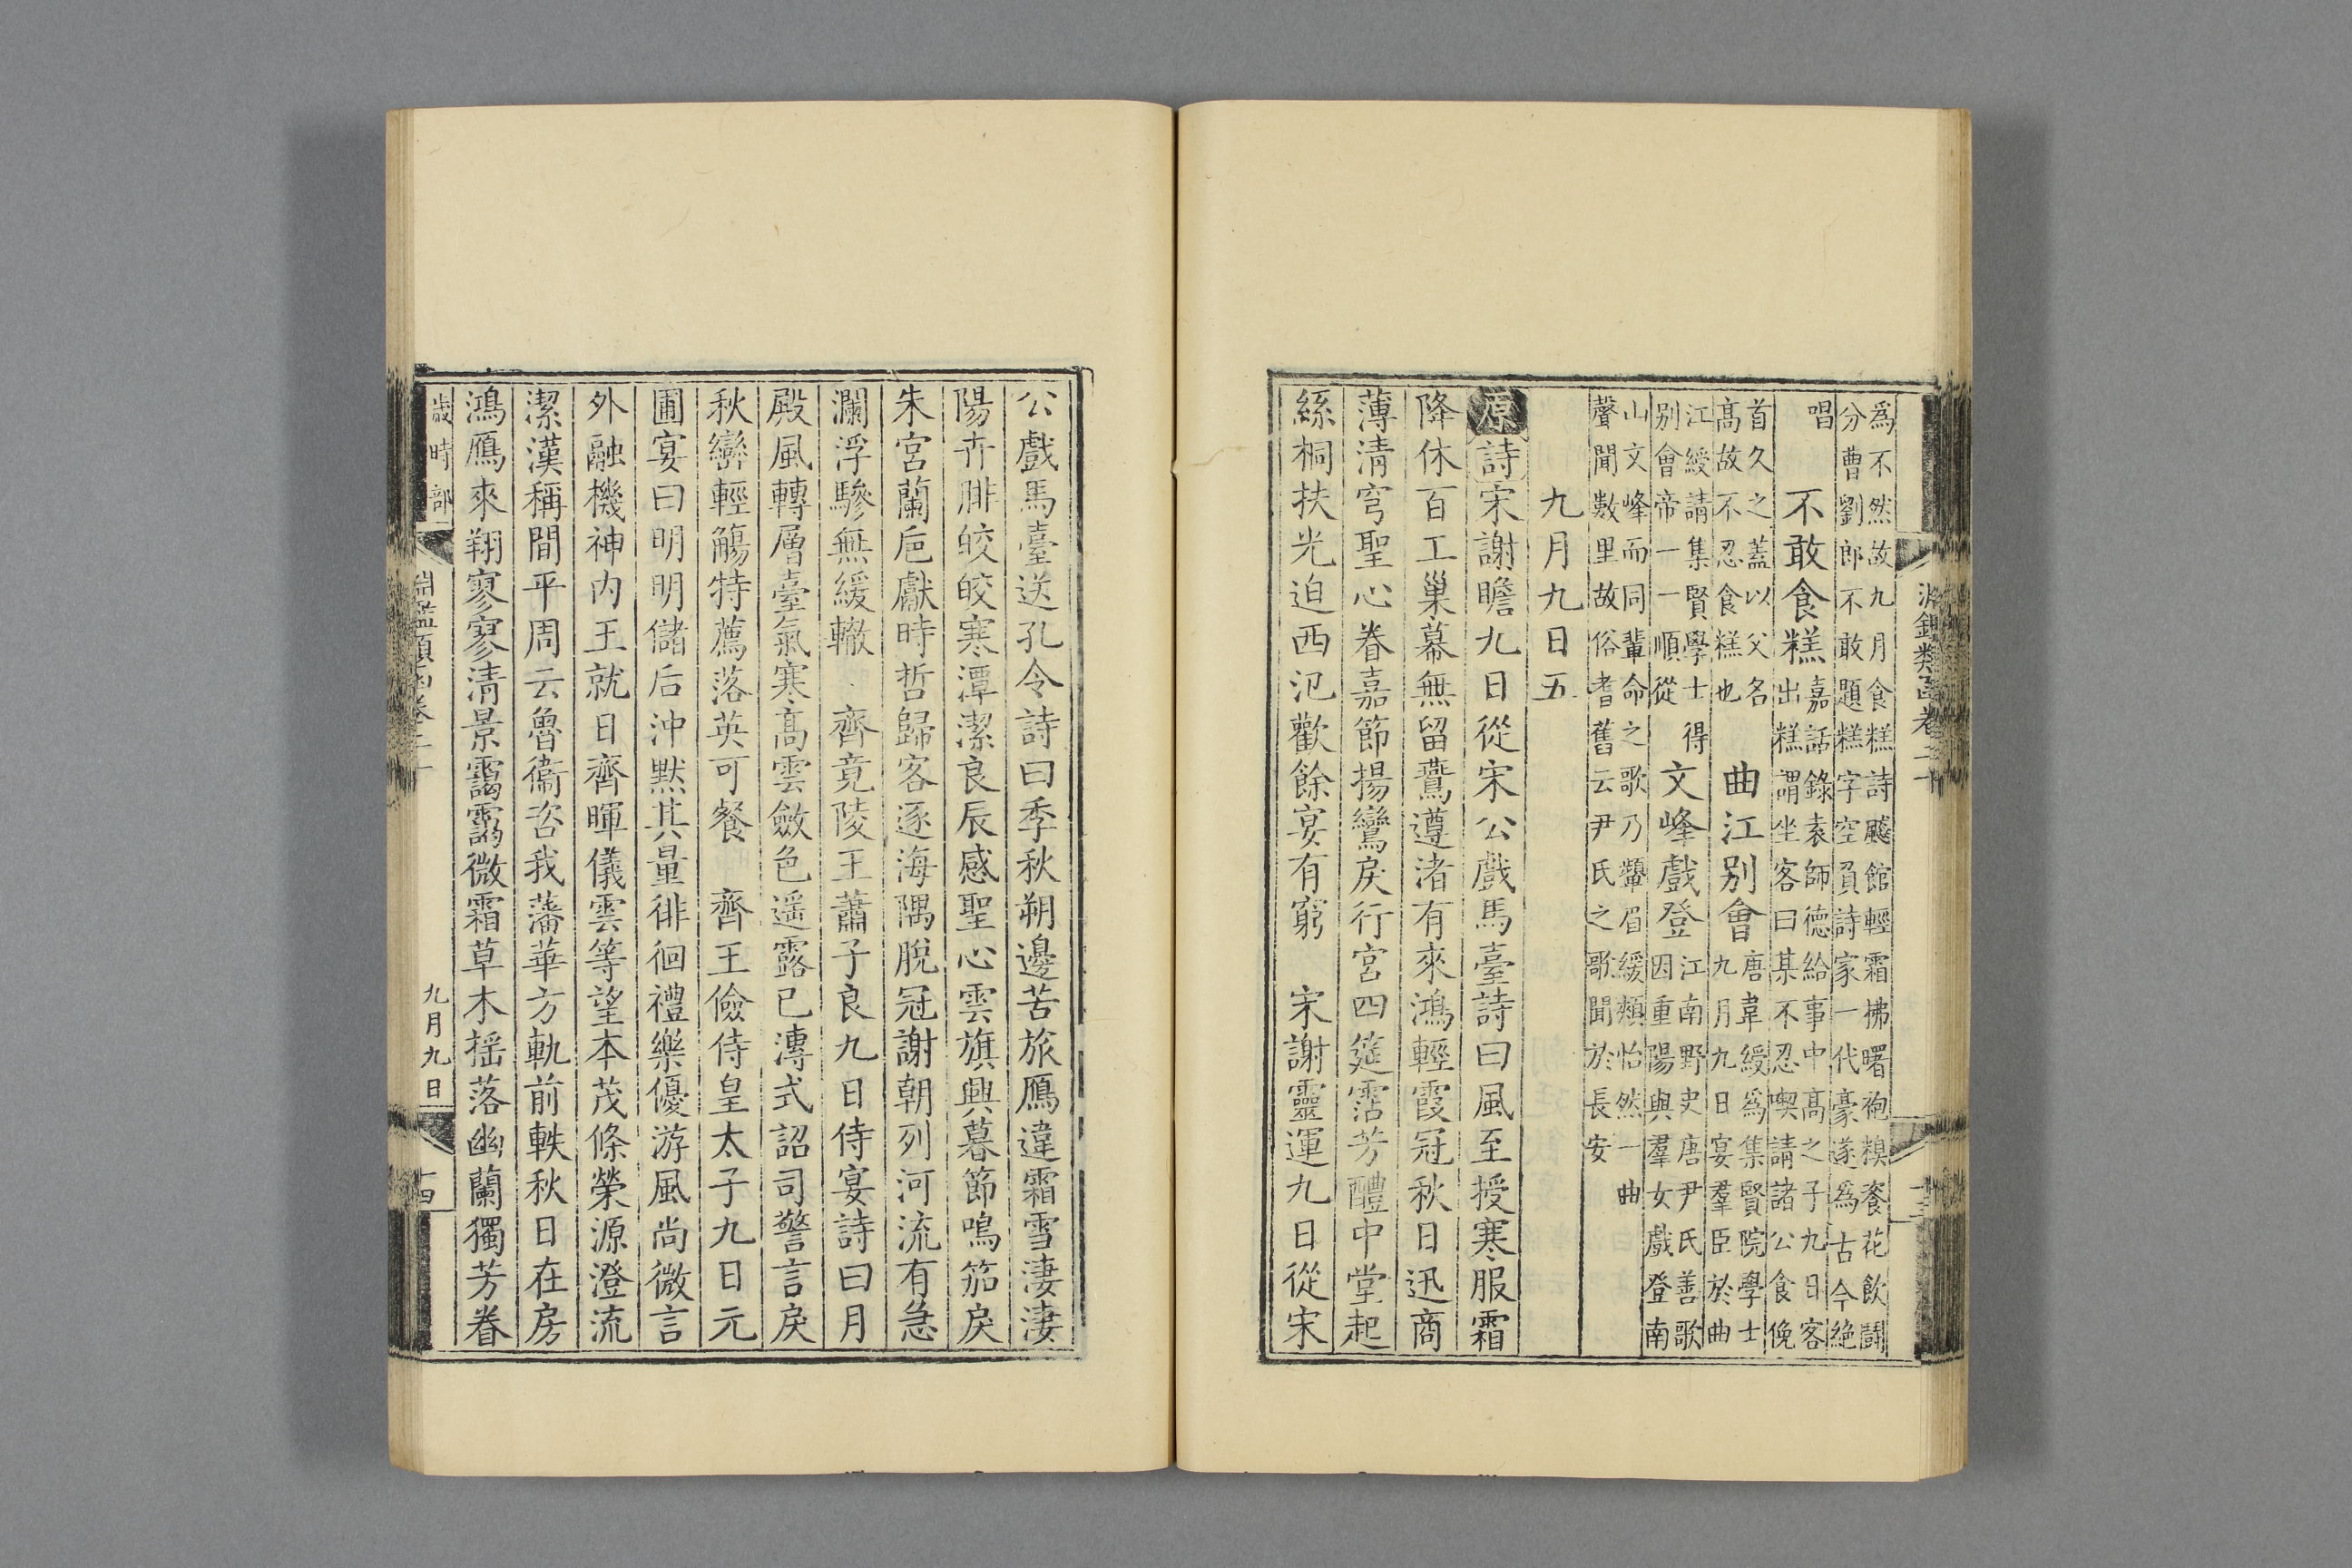 淵鑑類函卷二十
爲不然故九月食糕詩颷館輕霜拂曙袍糗餈花飲鬪
分曹劉郎不敢題糕字空負詩家一代豪遂爲古今絶
唱
不敢食糕
嘉話錄袁師德給事中高之子九日客
出糕謂坐客曰某不忍喫請諸公食俛
首久之蓋以父名
髙故不忍食糕也
曲江别會
唐韋綬爲集賢院學士
九月九日宴羣臣於曲
江綬請集賢學士得
别會帝一一順從
文峰戲登
江南野史唐尹氏善歌
因重陽與羣女戲登南
山文峰而同輩命之歌乃顰眉緩頰怡然一曲
聲聞數里故俗耆舊云尹氏之歌聞於長安
九月九日五
原詩宋謝瞻九日從宋公戲馬臺詩曰風至授寒服霜
降休百工巢幕無留鷰遵渚有來鴻輕霞冠秋日迅商
薄清穹聖心眷嘉節揚鑾戾行宮四筵霑芳醴中堂起
絲桐扶光迫西汜歡餘宴有窮　宋謝靈運九日從宋
公戲馬臺送孔令詩曰季秋朔邊苦旅鴈違霜雪淒淒
陽卉腓皎皎寒潭潔良辰感聖心雲旗興暮節鳴笳戾
朱宮蘭巵獻時哲歸客逐海隅脫冠謝朝列河流有急
瀾浮驂無緩轍　齊竟陵王蕭子良九日侍宴詩曰月
殿風轉層臺氣寒髙雲斂色遥露已漙式詔司警言戾
秋巒輕觴特薦落英可餐　齊王儉侍皇太子九日元
圃宴曰明明儲后沖默其量徘徊禮樂優游風尚微言
外融機神内王就日齊暉儀雲等望本茂條榮源澄流
潔漢稱間平周云魯衞咨我藩華方軌前軼秋日在房
鴻鴈來翔寥寥清景靄靄微霜草木揺落幽蘭獨芳眷
歳時部
淵鑑類函卷二十
九月九日
十四